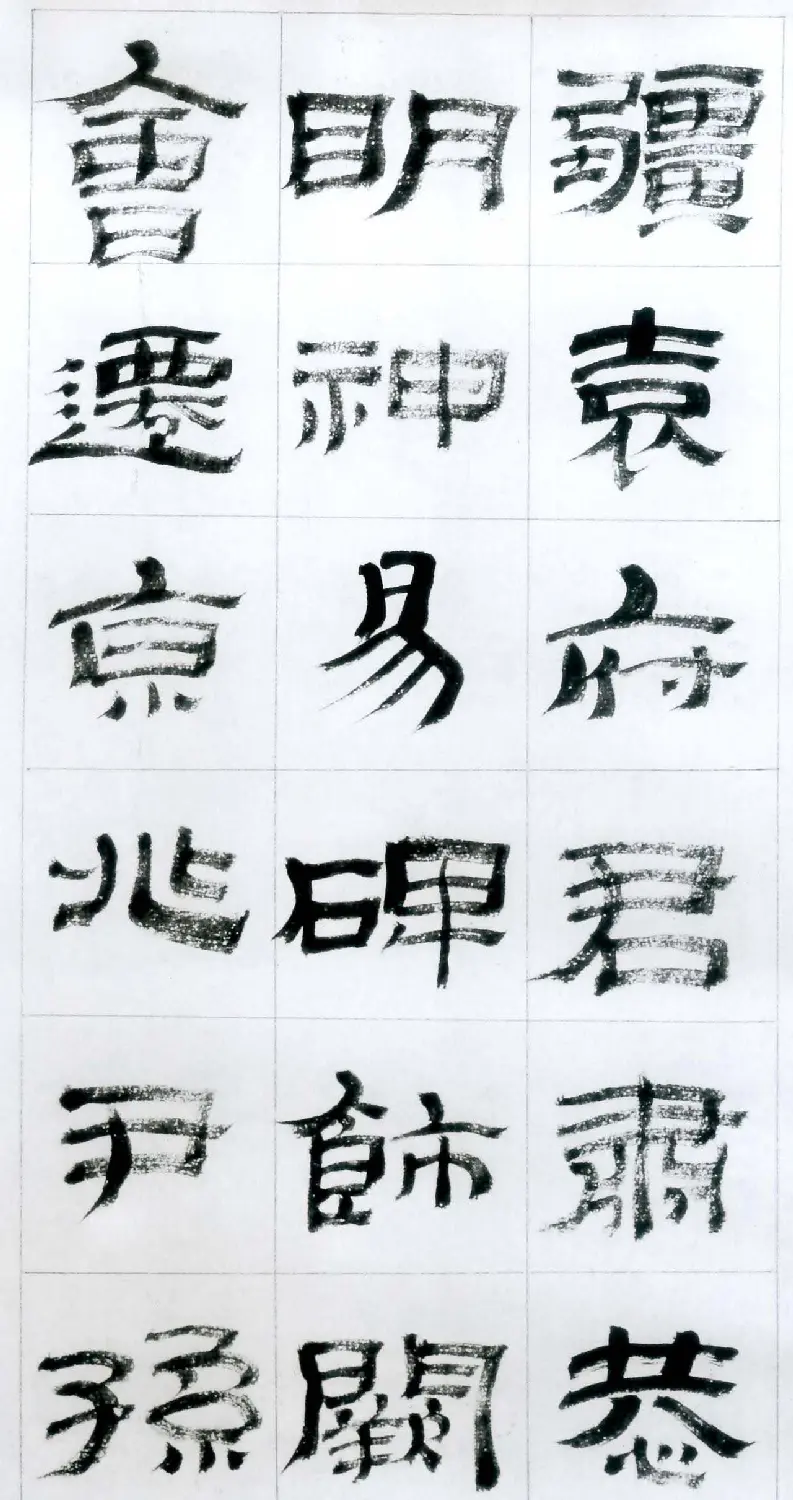 疆袁府君肅恭
明神易碑飾闕
會遷京兆尹孫